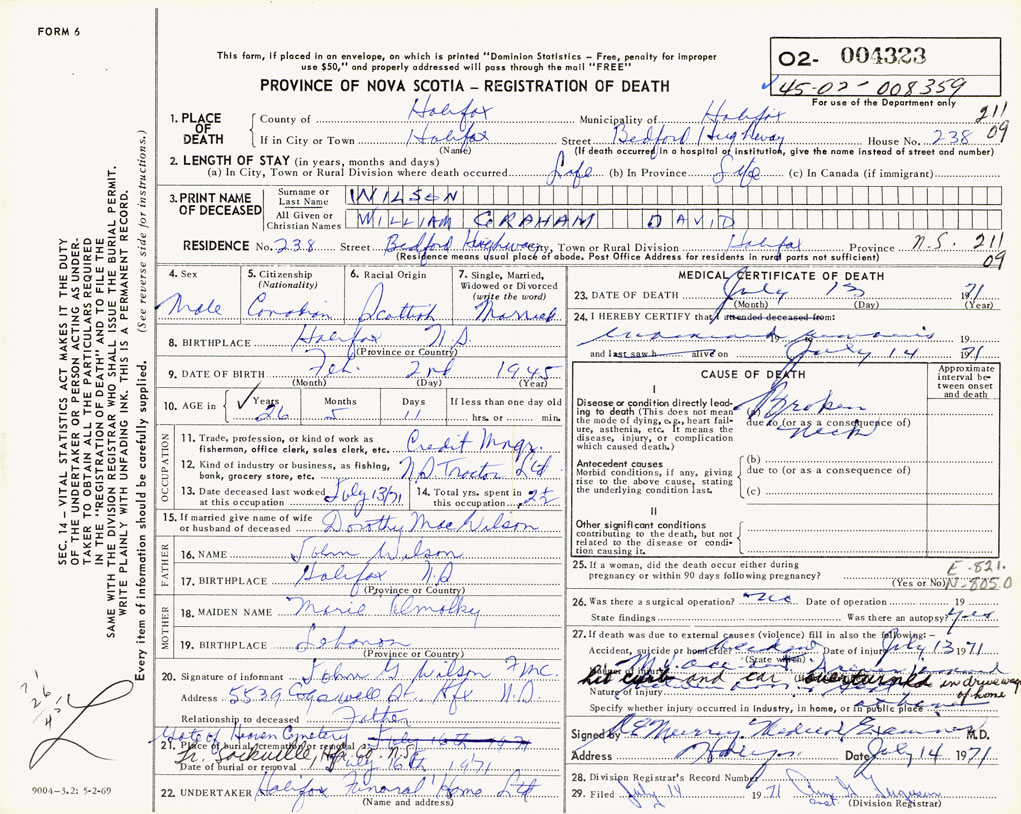 FORM 6
This form, if placed in an envelope, on which is printed "Dominion Statistics – Free, penalty for improper
use $50," and properly addressed will pass through the mail "FREE"
PROVINCE OF NOVA SCOTIA – REGISTRATION OF DEATH
02- 004323
45-02-008359
For use of the Department only
1. PLACE OF DEATH
County of Halifax Municipality of Halifax 211
If in City or Town Halifax Street Bedford Highway House No. 238 09
(Name) (If death occurred in a hospital or institution, give the name instead of street and number)
2. LENGTH OF STAY (in years, months and days)
(a) In City, Town or Rural Division where death occurred Life (b) In Province Life (c) In Canada (if immigrant)
3. PRINT NAME OF DECEASED
Surname or Last Name WILSON
All Given or Christian Names WILLIAM GRAHAM DAVID
RESIDENCE No. 238 Street Bedford Highway City, Town or Rural Division Halifax Province N.S. 211
(Residence means usual place of abode. Post Office Address for residents in rural parts not sufficient) 09
4. Sex
Male
5. Citizenship (Nationality)
Canadian
6. Racial Origin
Scottish
7. Single, Married, Widowed or Divorced (write the word)
Married
8. BIRTHPLACE Halifax N.S.
(Province or Country)
9. DATE OF BIRTH Feb. 2nd 1945
(Month) (Day) (Year)
10. AGE in Years Months Days If less than one day old
26 5 11 hrs. or min.
OCCUPATION
11. Trade, profession, or kind of work as fisherman, office clerk, sales clerk, etc. Credit Mngr.
12. Kind of industry or business, as fishing, bank, grocery store, etc. N S Tractor Ltd
13. Date deceased last worked at this occupation July 13/71
14. Total yrs. spent in this occupation 2½
15. If married give name of wife or husband of deceased Dorothy Mae Wilson
FATHER
16. NAME John Wilson
17. BIRTHPLACE Halifax N.S
(Province or Country)
MOTHER
18. MAIDEN NAME Marie
19. BIRTHPLACE Lebanon
(Province or Country)
20. Signature of informant John G Wilson
Address 5539 St. Hfx N.S.
Relationship to deceased Father
Gate of Heaven Cemetery July 16th 1971
21. Place of burial, cremation or removal Lr. Sackville, Hfx. Co. N.S.
Date of burial or removal July 16th 1971
22. UNDERTAKER Halifax Funeral Home Ltd
(Name and address)
MEDICAL CERTIFICATE OF DEATH
23. DATE OF DEATH July 13 1971
(Month) (Day) (Year)
24. I HEREBY CERTIFY that I attended deceased from:
19 19
and last saw h alive on July 14 1971
CAUSE OF DEATH
Approximate interval between onset and death
I
Disease or condition directly leading to death (This does not mean the mode of dying, e.g., heart failure, asthenia, etc. It means the disease, injury, or complication which caused death.)
(a) Broken neck
due to (or as a consequence of)
Antecedent causes
Morbid conditions, if any, giving rise to the above cause, stating the underlying condition last.
(b)
due to (or as a consequence of)
(c)
II
Other significant conditions
contributing to the death, but not related to the disease or condition causing it.
25. If a woman, did the death occur either during pregnancy or within 90 days following pregnancy?
(Yes or No)
E-821.
N-805.0
26. Was there a surgical operation? no Date of operation 19
State findings Was there an autopsy? yes
27. If death was due to external causes (violence) fill in also the following: –
Accident, suicide or homicide? Accident Date of injury July 13 1971
(State which)
Manner of injury
hit curb and car overturned in driveway of home
Nature of injury
Specify whether injury occurred in industry, in home, or in public place at home
Signed by Murray Medical Examiner M.D.
Address Date July 14 1971
28. Division Registrar's Record Number
29. Filed July 14 1971 Ferguson
(Division Registrar)
SEC. 14 – VITAL STATISTICS ACT MAKES IT THE DUTY
OF THE UNDERTAKER OR PERSON ACTING AS UNDER-
TAKER TO OBTAIN ALL THE PARTICULARS REQUIRED
IN THE "REGISTRATION OF DEATH" AND TO FILE THE
SAME WITH THE DIVISION REGISTRAR WHO SHALL ISSUE THE BURIAL PERMIT.
WRITE PLAINLY WITH UNFADING INK. THIS IS A PERMANENT RECORD.
Every item of information should be carefully supplied. (See reverse side for instructions.)
9004-3.2: 5-2-69